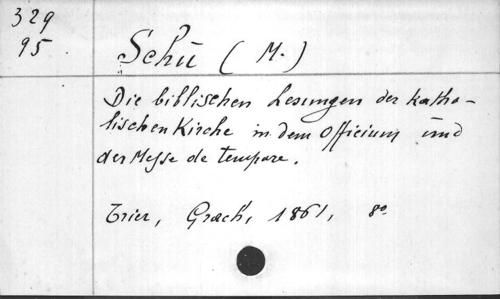 329
95
Schü (M.)
Die biblischen Lesungen der katho-
lischen Kirche in dem Officium und
der Messe de tempore.
Trier, Grach, 1861, 8o